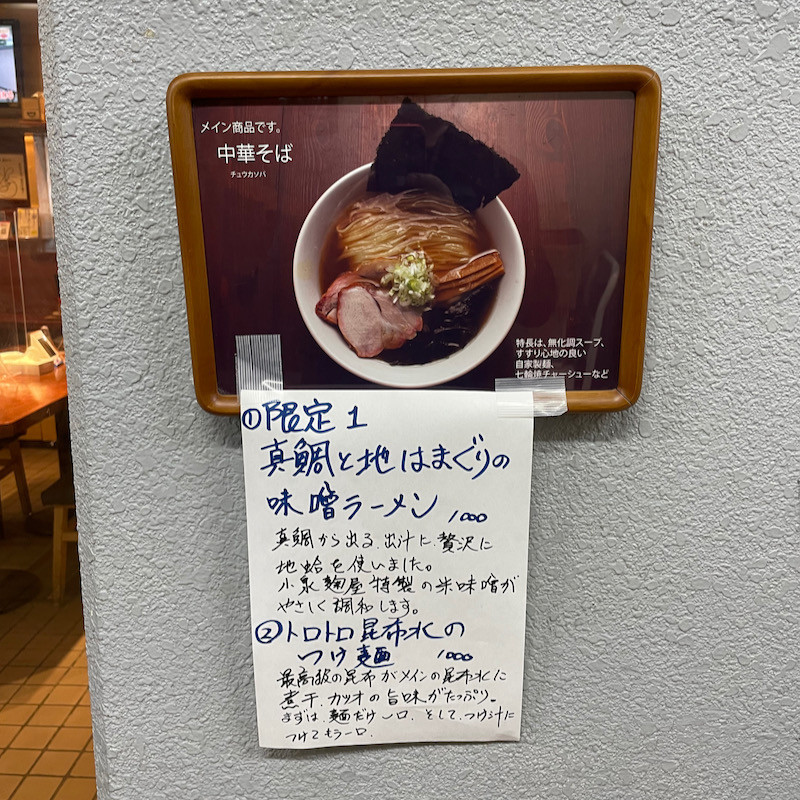 メイン商品です。
中華そば
チュウカソバ
特長は、無化調スープ、
すすり心地の良い
自家製麺、
七輪焼チャーシューなど
①限定1
真鯛と地はまぐりの
味噌ラーメン 1000
真鯛から出る出汁に贅沢に
地蛤を使いました。
小泉麹屋特製の米味噌が
やさしく調和します。
②トロトロ昆布水の
つけ麺 1000
最高級の昆布がメインの昆布水に
煮干、カツオの旨味がたっぷり。
まずは、麺だけ一口、そして、つけ汁に
つけてもう一口.